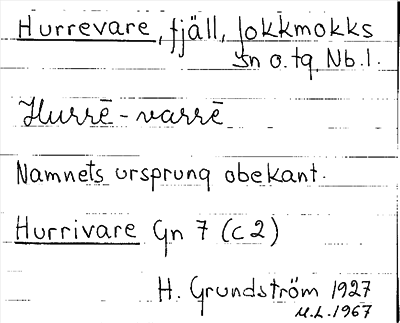 Hurrevare, fjäll, Jokkmokks
sn o. tg, Nb.l.
Hurrē-varrē
Namnets ursprung obekant.
Hurrivare Gn 7 (c2)
H. Grundström 1927
M.L. 1967